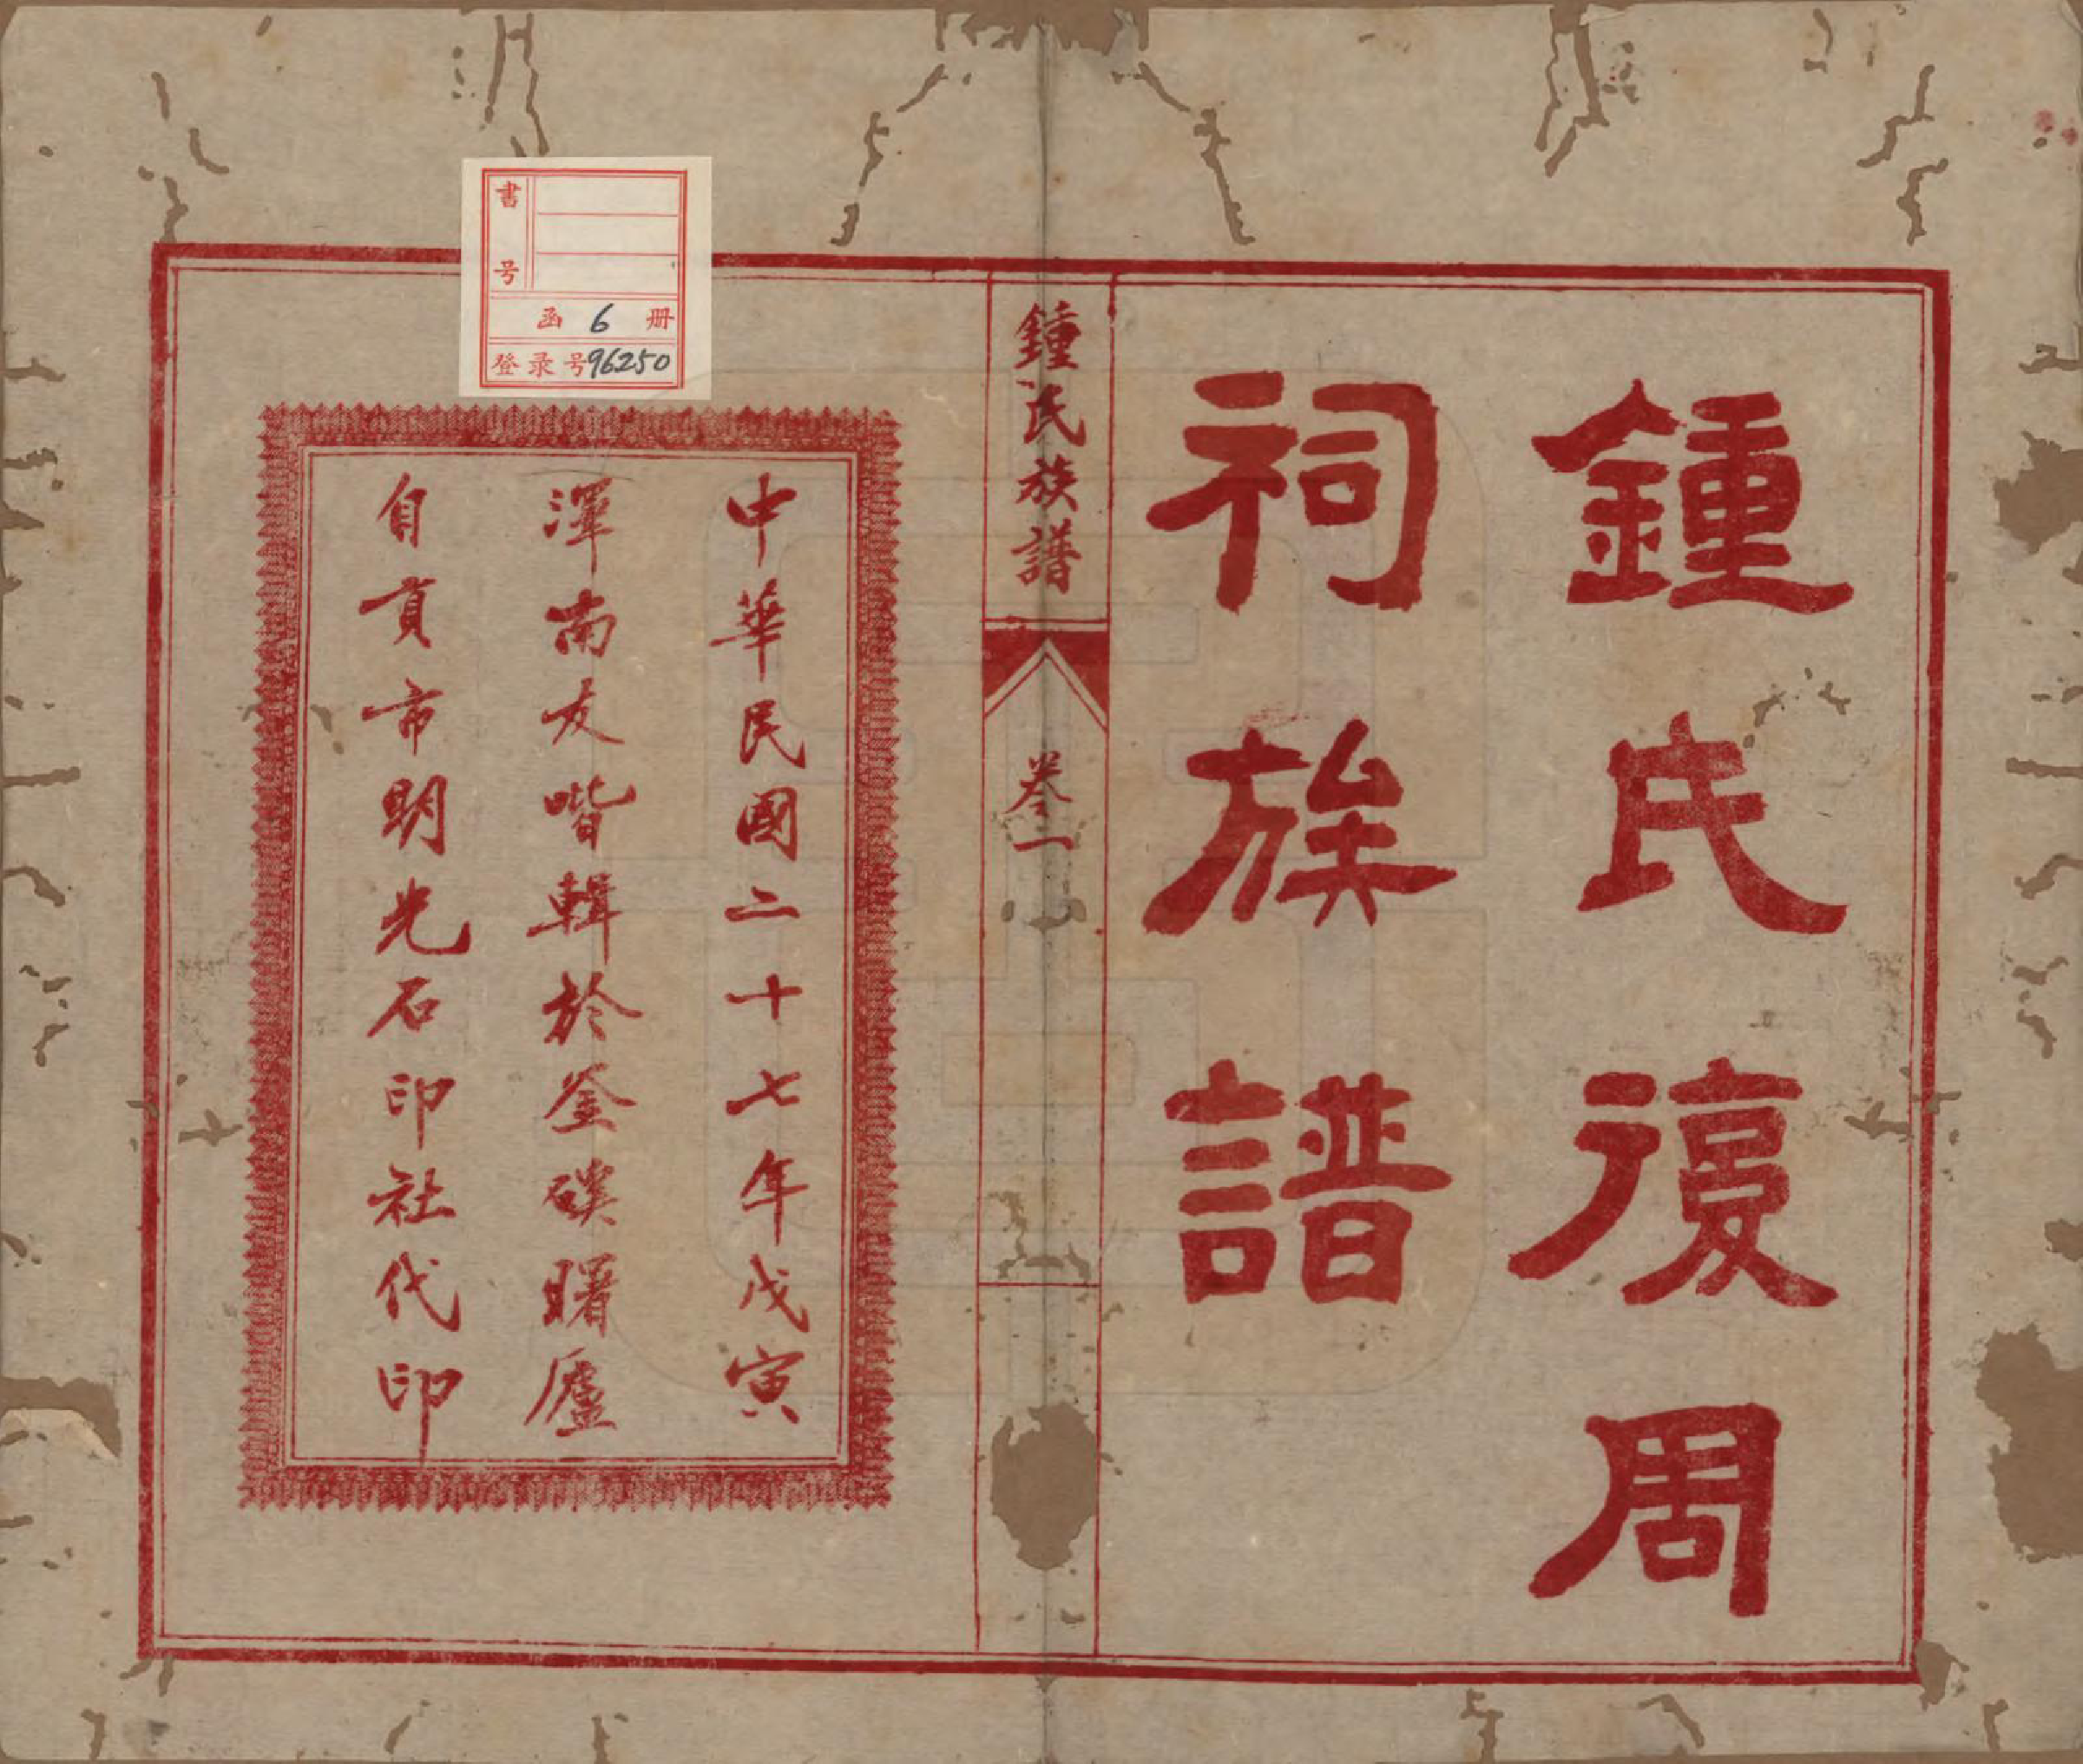 鍾氏復周
祠族譜
鍾氏族譜
卷一
中華民國二十七年戊寅
渾南友喈輯於釜磎曙廬
自貢市明光石印社代印
書号
函 6 册
登录号96250